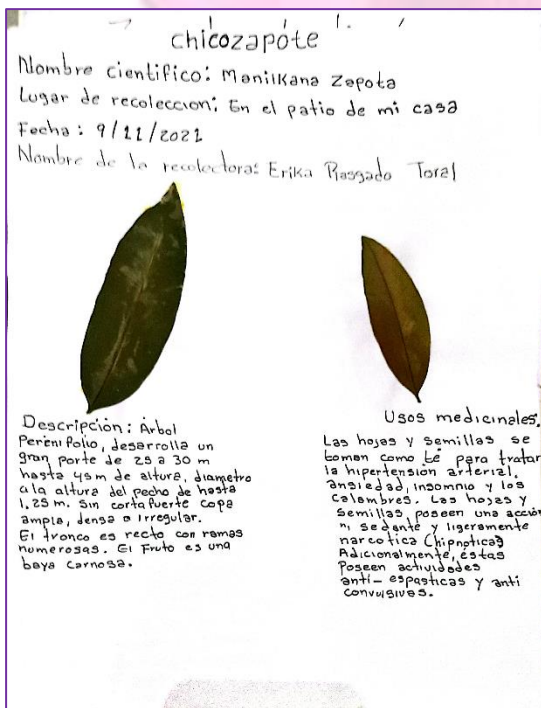 chicozapóte
Nombre cientifico: Manilkana Zapota
Lugar de recoleccion: En el patio de mi casa
Fecha: 9/11/2021
Nombre de la recolectora: Erika Rasgado Toral
Descripción: Árbol
Perenifolio, desarrolla un
gran porte de 25 a 30 m
hasta 45m de altura, diametro
a la altura del pecho de hasta
1.25 m. Sin corta fuerte copa
ampla, densa o irregular.
El tronco es recto con ramas
numerosas. El Fruto es una
baya carnosa.
Usos medicinales.
Las hojas y semillas se
toman como té para tratar
la hipertensión arterial,
ansiedad, insomnio y los
calambres. Las hojas y
semillas, poseen una acción
sedante y ligeramente
narcotica (hipnotica)
Adicionalmente, éstas
Poseen actividades
anti-espasticas y anti
convulsivas.